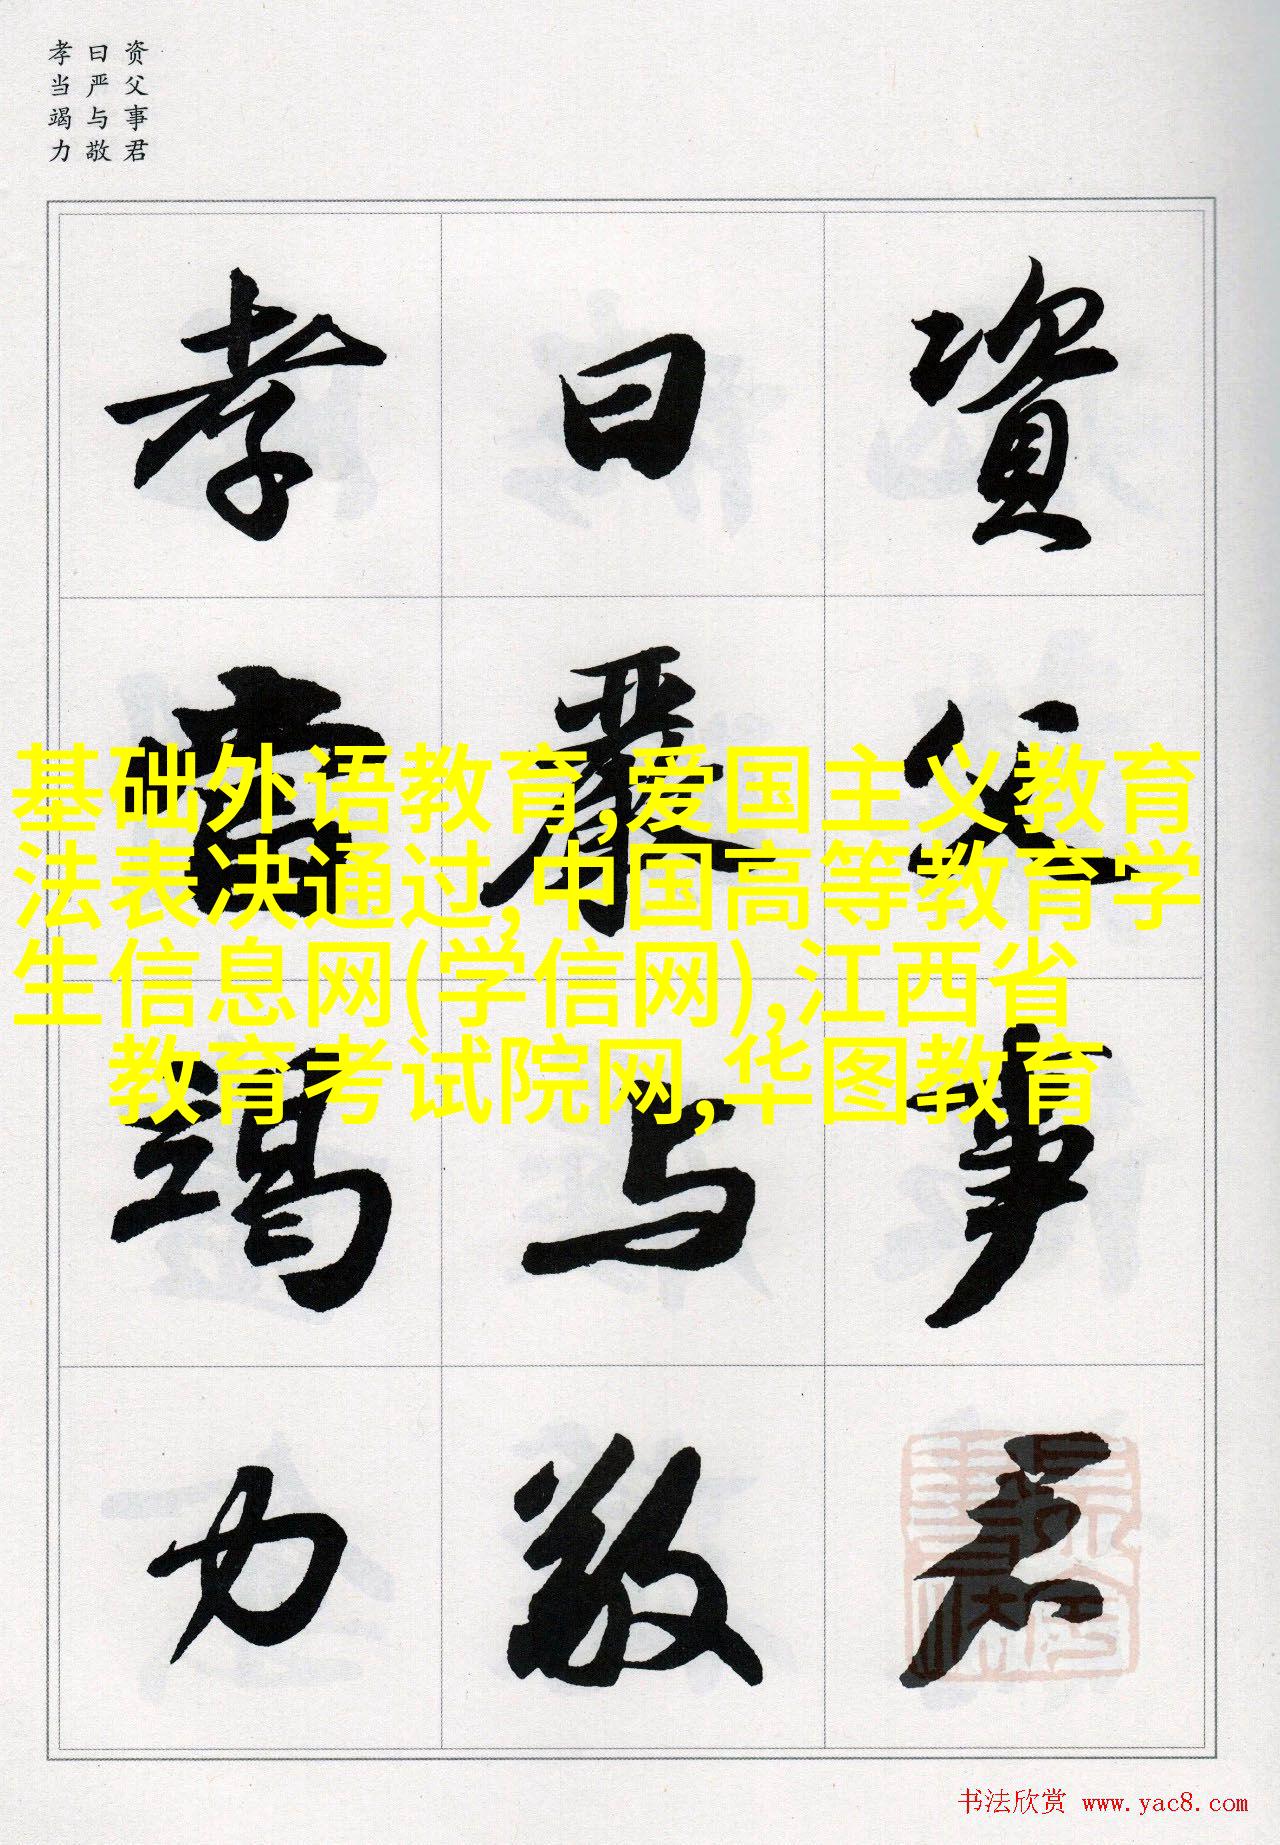 资父事君
曰严与敬
孝当竭力
資父事君
曰嚴与敬
孝當竭力
基础外语教育,爱国主义教育
法表决通过,中国高等教育学
生信息网(学信网),江西省
教育考试院网,华图教育
书法欣赏 www.yac8.com